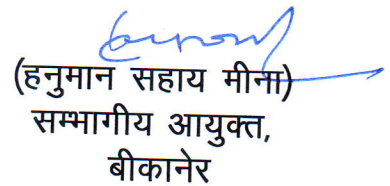 (हनुमान सहाय मीना)
सम्भागीय आयुक्त,
बीकानेर